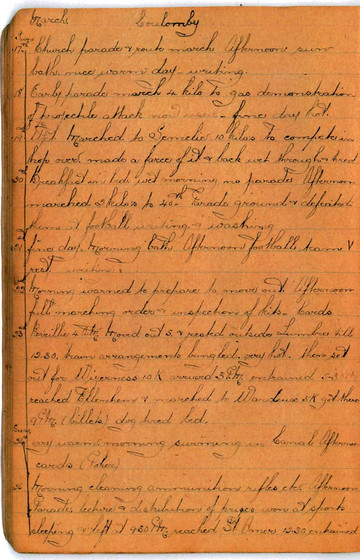 March Coulomby
17 Church parade & route march Afternoon sun
bath nice warm day - writing.
18 Early parade march 4 kilo to gas demonstration
of projectile attack now used - fine day hot.
19 marched to 10 kilos to compete in
hop over made a farce of it & back wet through & tired
20 Breakfast in bed wet morning no parades Afternoon
marched 3 kilos to 40th Parade ground & defeated
them at football writing & washing
21 fine day. Morning bath Afternoon football team V
rest writing.
22 Morning warned to prepare to move out Afternoon
full marching order & inspection of kits. Cards
Reveille 4 AM Moved out 5. & rested outside Lumbres till
12.30, train arrangements bungled. very hot. Then set
out for Wizerness 10 K arrived 3 PM entrained
reached & marched to K got there
9 PM (billets) dog tired bed.
very warm morning swimming in Canal Afternoon
cards (Poker)
Morning cleaning ammunition rifles etc. Afternoon
Parades lecture & distribution of prizes won at sports
sleeping & left at 930 PM reached St Omer 12.30 entrained